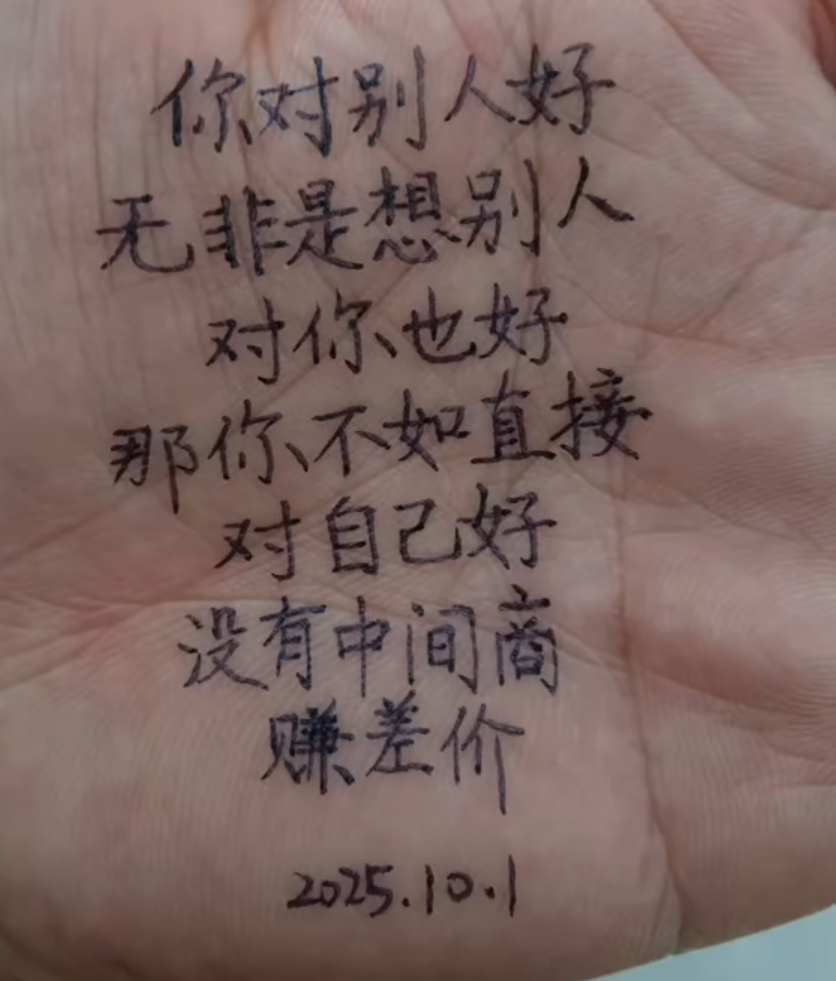 你对别人好
无非是想别人
对你也好
那你不如直接
对自己好
没有中间商
赚差价
2025.10.1